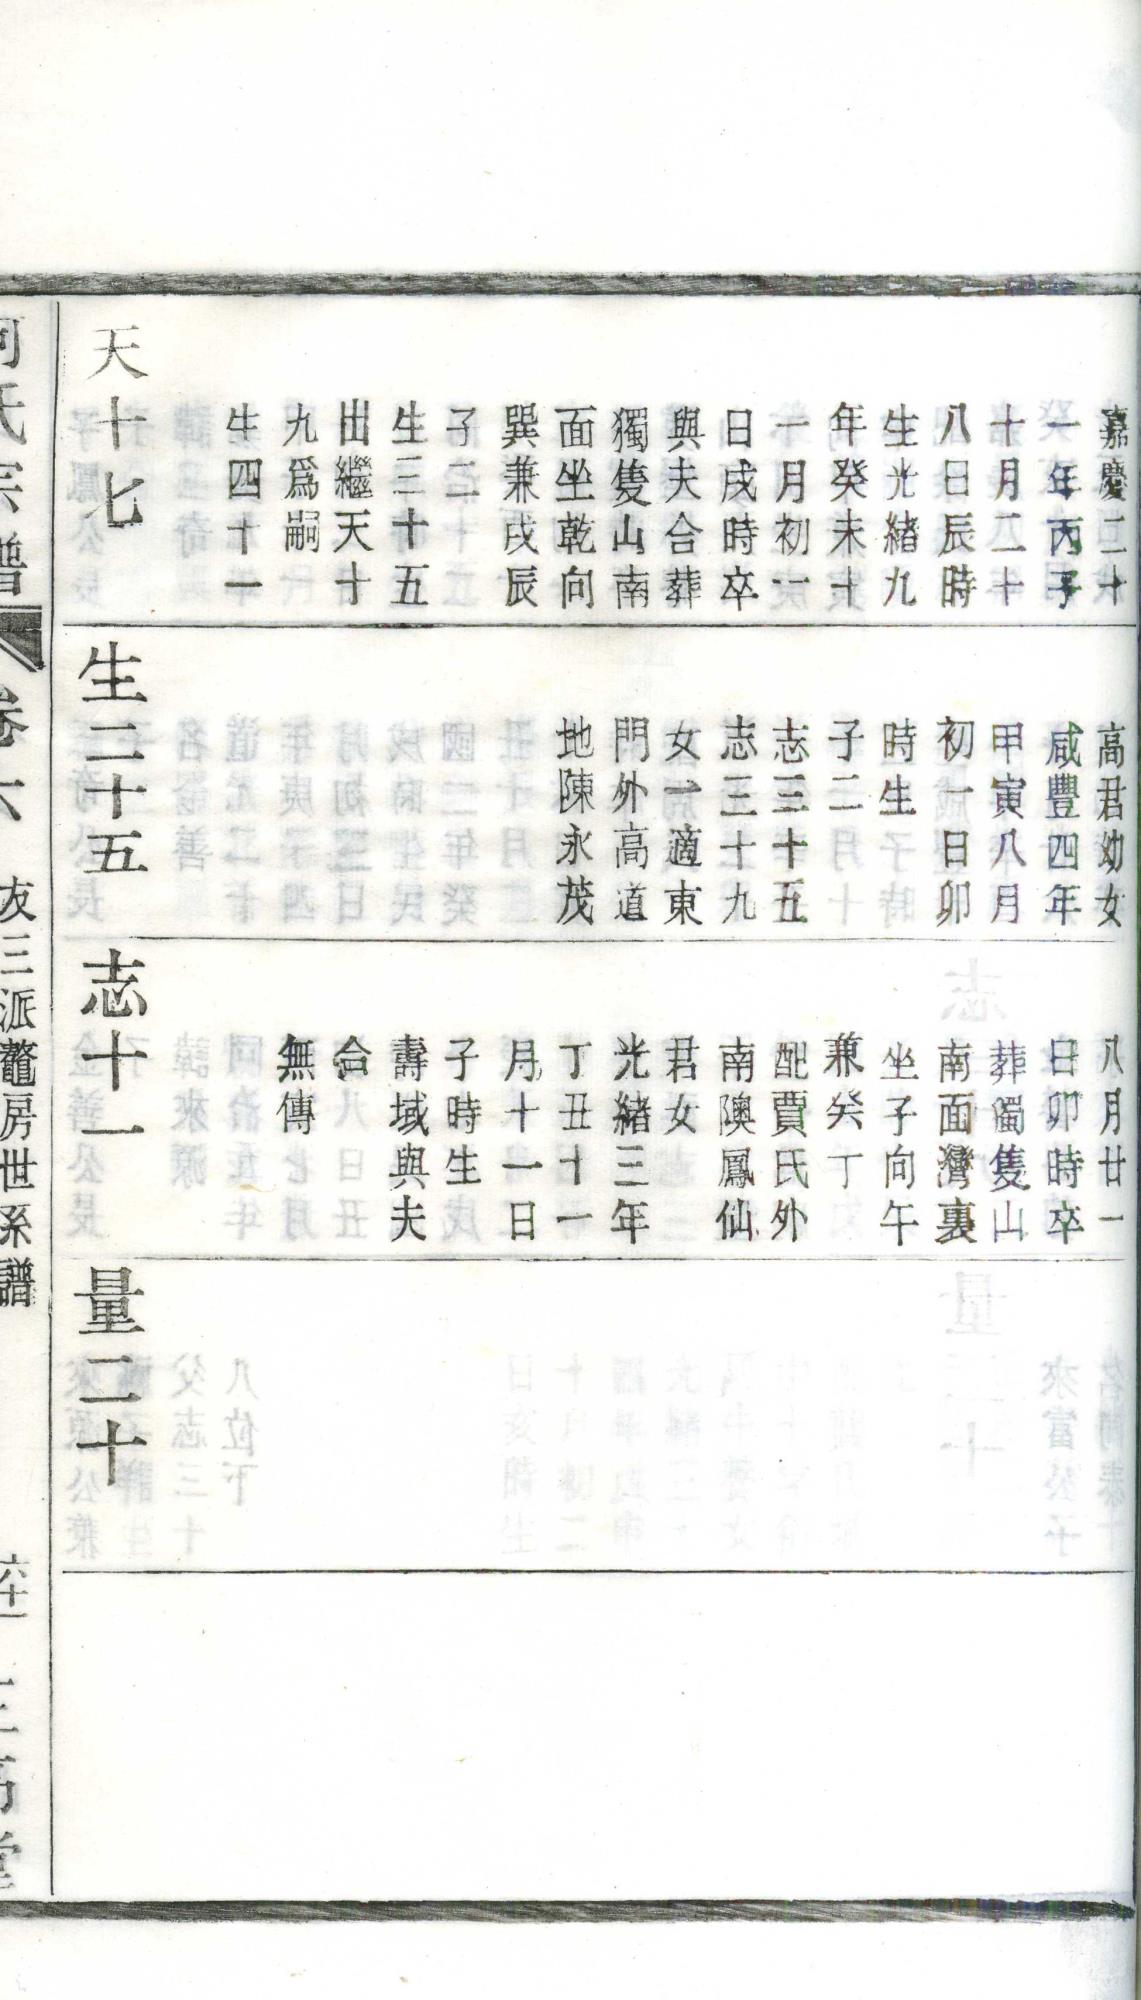 嘉慶二十
一年丙子
十月二十
八日辰時
生光緒九
年癸未十
一月初一
日戌時卒
與夫合葬
獨隻山南
面坐乾向
巽兼戌辰
子二
生三十五
出繼天十
九爲嗣
生四十一
天十七
高君幼女
咸豐四年
甲寅八月
初一日卯
時生
子二
志三十五
志三十九
女一適東
門外高道
地陳永茂
生二十五
八月廿一
日卯時卒
葬獨隻山
南面灣裏
坐子向午
兼癸丁
配賈氏外
南隩鳳仙
君女
光緒三年
丁丑十一
月十一日
子時生
壽域與夫
合
無傳
志十一
量二十
何氏宗譜
卷六
友三派鼇房世系譜
六十一
三高堂